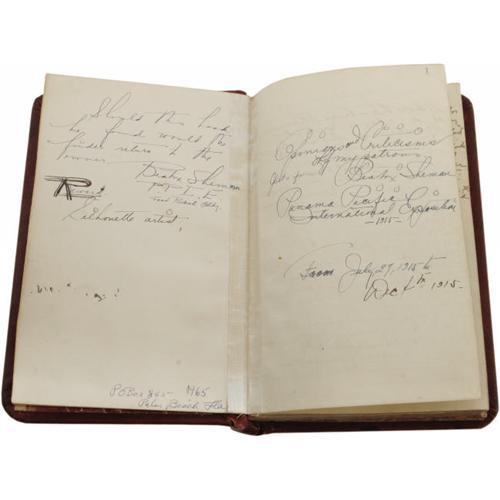 Should this book
be found would the
finder return to the
owner.
Beatrix Sherman
Food Prod. Bldg.
Reward
Silhouette artist.
P.O Box 865 1965
Palm Beach Fla
1
Opinions and Criticisms
of my patrons
Beatrix Sherman
Panama Pacific
International Exposition
-1915-
From July 29, 1915 to
Dec 4th 1915-